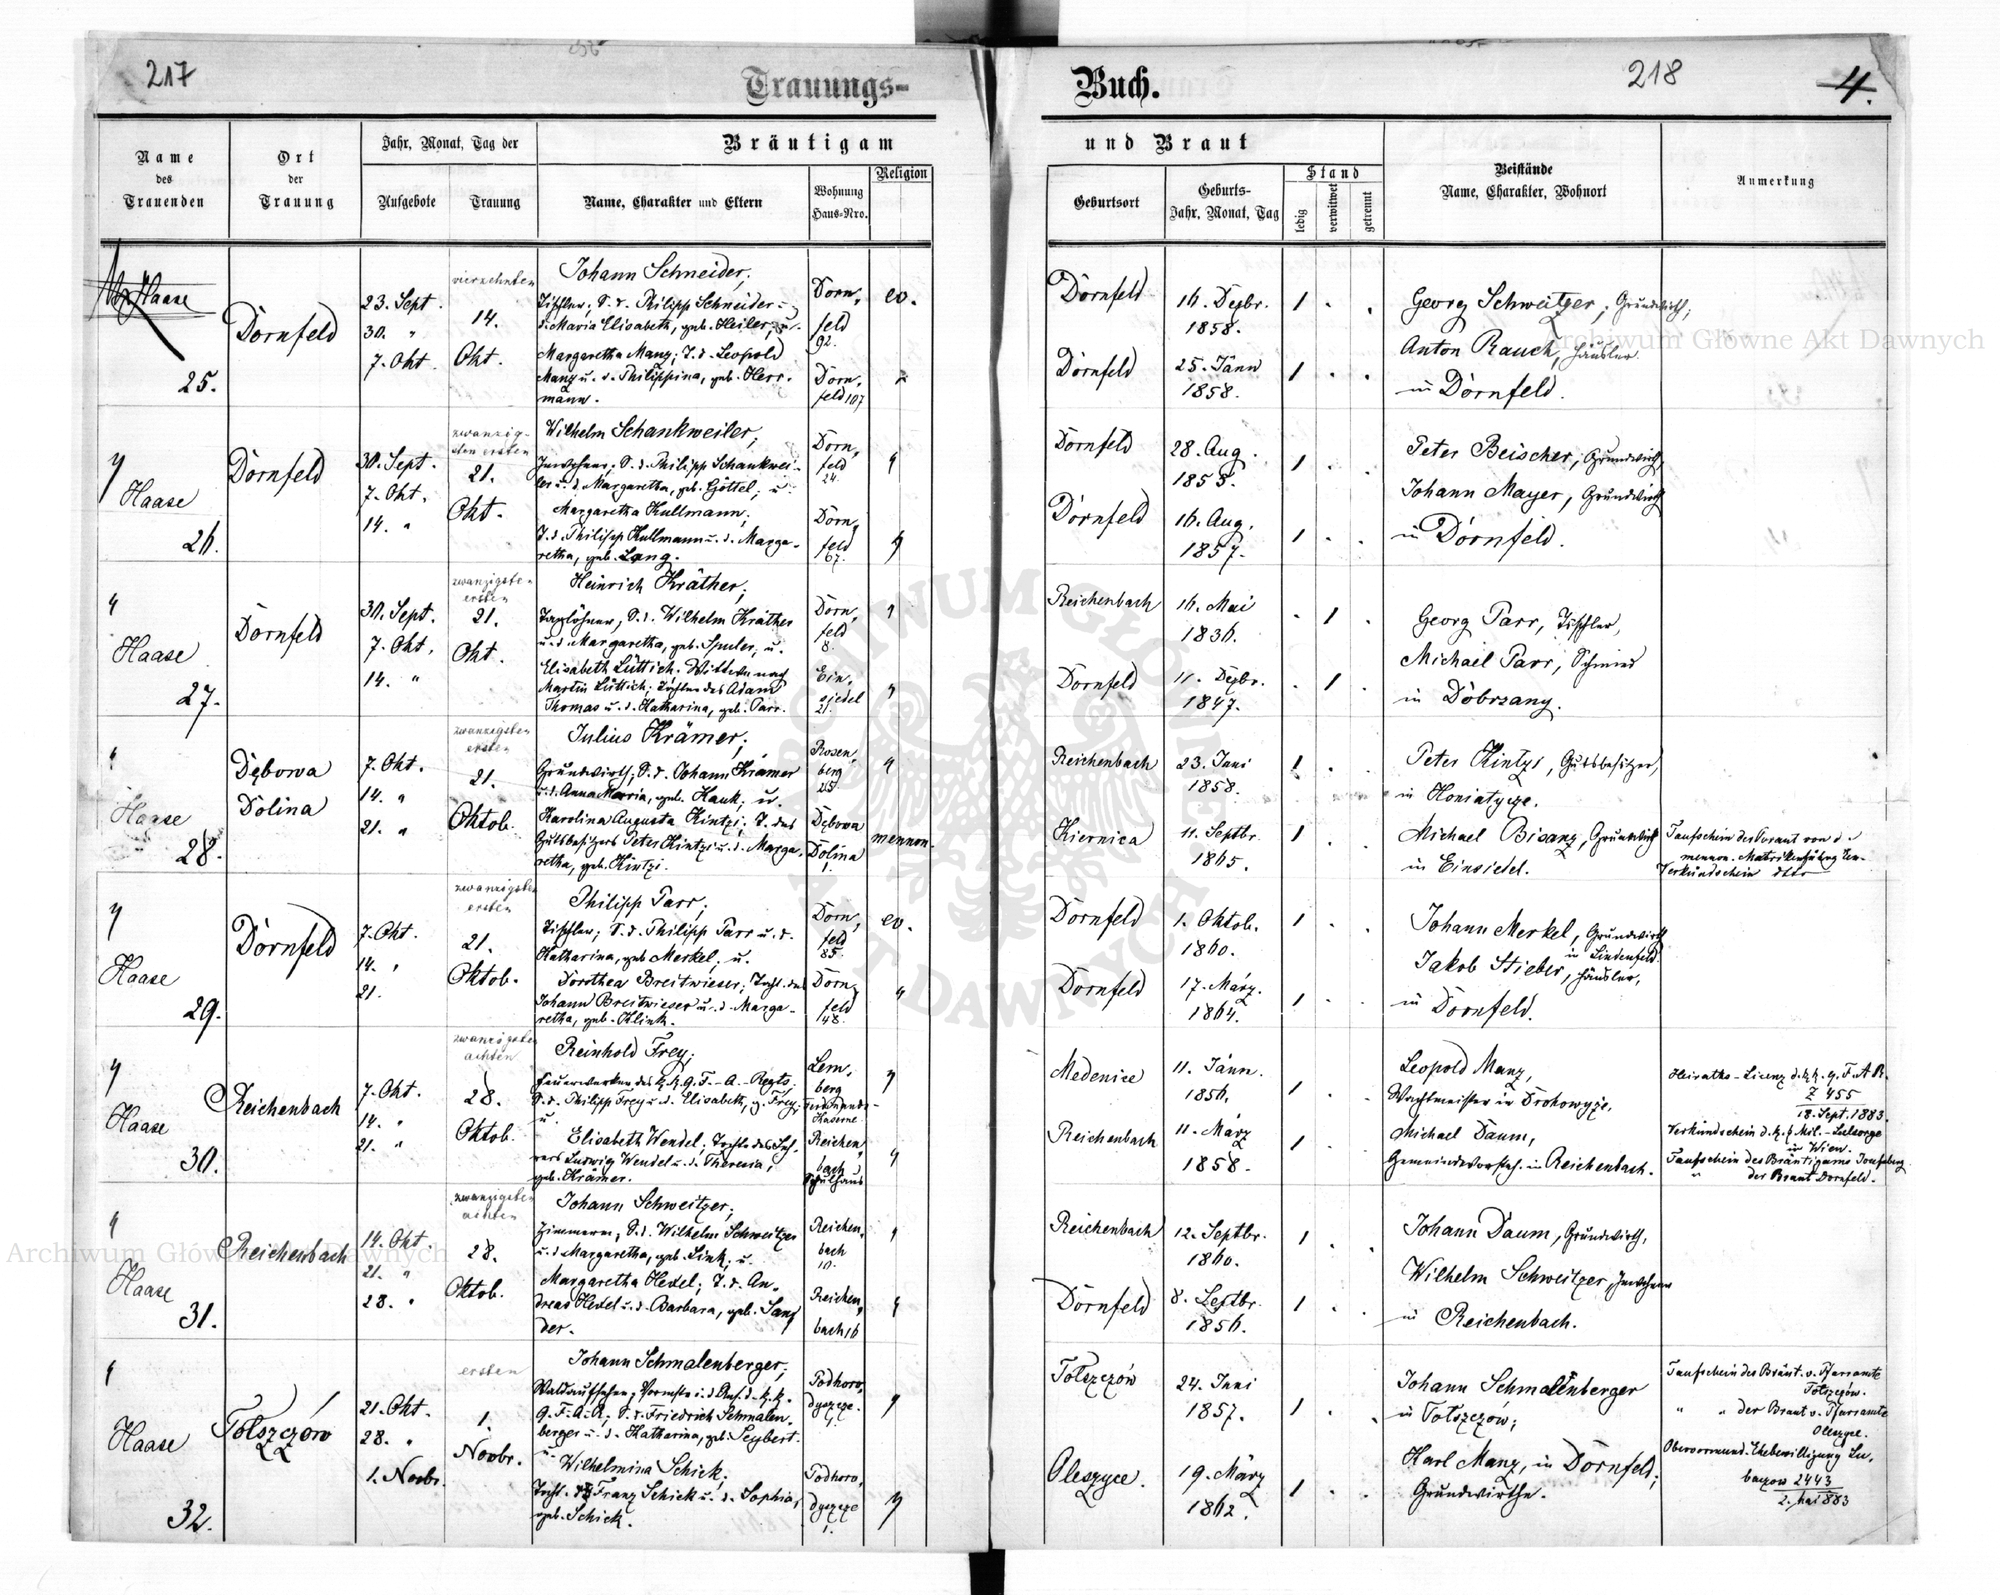 217
Trauungs-
Buch.
218
4.
Name
des
Trauenden
Ort
der
Trauung
Jahr, Monat, Tag der
Aufgebote
Trauung
Bräutigam
Name, Charakter und Eltern
Wohnung
Haus-Nro.
Religion
und Braut
Geburtsort
Geburts-
Jahr, Monat, Tag
Stand
ledig
verwitwet
getrennt
Beistände
Name, Charakter, Wohnort
Anmerkung
Haase
25.
Dornfeld
23. Sept.
30. "
7. Okt.
vierzehnten
14.
Okt.
Johann Schneider,
Tischler; S. d. Philipp Schneider u.
d. Maria Elisabeth, geb. Heiler; u.
Margaretha Manz; T. d. Leopold
Manz u. d. Philippina, geb. Herr-
mann.
Dorn,
feld
92.
Dorn,
feld 107
ev.
"
Dornfeld
16. Dezbr.
1858.
1 . .
Dornfeld
25. Jänn
1858.
1 . .
Georg Schweitzer, Grundwirth;
Anton Rauch, Häusler
in Dornfeld.
"
Haase
26.
Dornfeld
30. Sept.
7. Okt.
14. "
zwanzig-
sten ersten
21.
Okt.
Wilhelm Schankweiler;
Inwohner; S. d. Philipp Schankwei-
ler u. d. Margaretha, geb. Göttel; u.
Margaretha Kullmann;
T. d. Philipp Kullmann u. d. Marga-
retha, geb. Lang.
Dorn,
feld
24.
Dorn,
feld
67.
"
"
Dornfeld
28. Aug.
1858.
1 . .
Dornfeld
16. Aug.
1857.
1 . .
Peter Beischer, Grundwirth,
Johann Mayer, Grundwirth
in Dornfeld.
"
Haase
27.
Dornfeld
30. Sept.
7. Okt.
14. "
zwanzigsten
ersten
21.
Okt.
Heinrich Kräther;
Taglöhner, S. d. Wilhelm Kräther
u. d. Margaretha, geb. Spuler; u.
Elisabeth Lüttich. Wittwe nach
Martin Lüttich; Tochter des Adam
Thomas u. d. Katharina, geb. Parr.
Dorn,
feld
8.
Ein,
siedel
21.
"
"
Reichenbach
16. Mai
1836.
. 1 .
Dornfeld
11. Dezbr.
1847.
. 1 .
Georg Parr, Tischler,
Michael Parr, Schmied
in Dobrzany.
"
Haase
28.
Dębowa
Dolina
7. Okt.
14. "
21. "
zwanzigsten
ersten
21.
Oktob.
Julius Krämer;
Grundwirth; S. d. Johann Krämer
u. d. Anna Maria, geb. Hauk; u.
Karolina Augusta Kintzi; T. des
Gutsbesitzers Peter Kintzi u. d. Marga-
retha, geb. Kintzi.
Rosen,
berg
Dębowa
Dolina
1.
"
mennon.
Reichenbach
23. Juni
1858.
1 . .
Kiernica
11. Septbr.
1865.
1 . .
Peter Kintzi, Gutsbesitzer,
in Honiatycze.
Michael Bisanz, Grundwirth
in Einsiedel.
Taufschein der Braut von d.
mennon. Matrikenführg
Verkündschein dtto
"
Haase
29.
Dornfeld
7. Okt.
14. "
21.
zwanzigsten
ersten
21.
Oktob.
Philipp Parr;
Tischler; S. d. Philipp Parr u. d.
Katharina, geb Merkel; u.
Dorothea Breitwieser; Tocht. des
Johann Breitwieser u. d. Marga-
retha, geb. Klink.
Dorn,
feld
85.
Dorn,
feld
148.
ev.
"
Dornfeld
1. Oktob.
1860.
1 . .
Dornfeld
17. März.
1864.
1 . .
Johann Merkel, Grundwirth
in Lindenfeld.
Jakob Stieber, Häusler,
in Dornfeld.
"
Haase
30.
Reichenbach
7. Okt.
14. "
21. "
zwanzigsten
achten
28.
Oktob.
Reinhold Frey;
Feuerwerker des k. k. 9. F.-A.-Regts;
S. d. Philipp Frey u. d. Elisabeth, g. Frey,
u.
Elisabeth Wendel; Tochter des Leh-
rers Ludwig Wendel u. d. Theresia,
geb. Krämer.
Lem,
berg
Ferdinands-
Kaserne
Reichen,
bach
Schulhaus
"
"
Medenice
11. Jänn.
1856.
1 . .
Reichenbach
11. März
1858.
1 . .
Leopold Manz,
Wachtmeister in Drohowyże,
Michael Daum,
Gemeindevorsteh. in Reichenbach.
Heiraths-Licenz d. k. k. 9. F. A. R.
Z 455
18. Sept. 1883.
Verkündschein d. k. k. Mil.-Seelsorge
in Wien.
Taufschein des Bräutigams Josefsberg
" der Braut Dornfeld.
"
Haase
31.
Reichenbach
14. Okt.
21. "
28. "
zwanzigsten
achten
28.
Oktob.
Johann Schweitzer;
Zimmerm., S. d. Wilhelm Schweitzer
u. d. Margaretha, geb. Link; u.
Margaretha Hexel; T. d. An-
dreas Hexel u. d. Barbara, geb. Sang
der.
Reichen,
bach
10.
Reichen,
bach 16
"
"
Reichenbach
12. Septbr.
1860.
1 . .
Dornfeld
8. Septbr.
1856.
1 . .
Johann Daum, Grundwirth,
Wilhelm Schweitzer, Inwohner
in Reichenbach.
"
Haase
32.
Tołszczów
21. Okt.
28. "
1. Novbr.
ersten
1.
Novbr.
Johann Schmalenberger;
Waldaufseher, Vormeister i. d. Res. d. k. k.
9. F. A. R; S. d. Friedrich Schmalen-
berger u. d. Katharina, geb. Seybert.
u.
Wilhelmina Schick;
Tocht. des Franz Schick u. d. Sophia,
geb. Schick.
Podhoro,
dyszcze
1.
Podhoro,
dyszcze
1.
"
"
Tołszczów
24. Juni
1857.
1 . .
Oleszyce.
19. März
1862.
1 . .
Johann Schmalenberger
in Tołszczów;
Karl Manz, in Dornfeld;
Grundwirthe.
Taufschein des Bräut. v. Pfarramte
Tołszczów.
" " der Braut v. Pfarramte
Oleszyce.
Obervormund. Ehebewilligung Lu,
baczow 2443
2. Mai 883
Archiwum Główne Akt Dawnych
Archiwum Główne Akt Dawnych
ARCHIWUM GŁÓWNE
AKT DAWNYCH